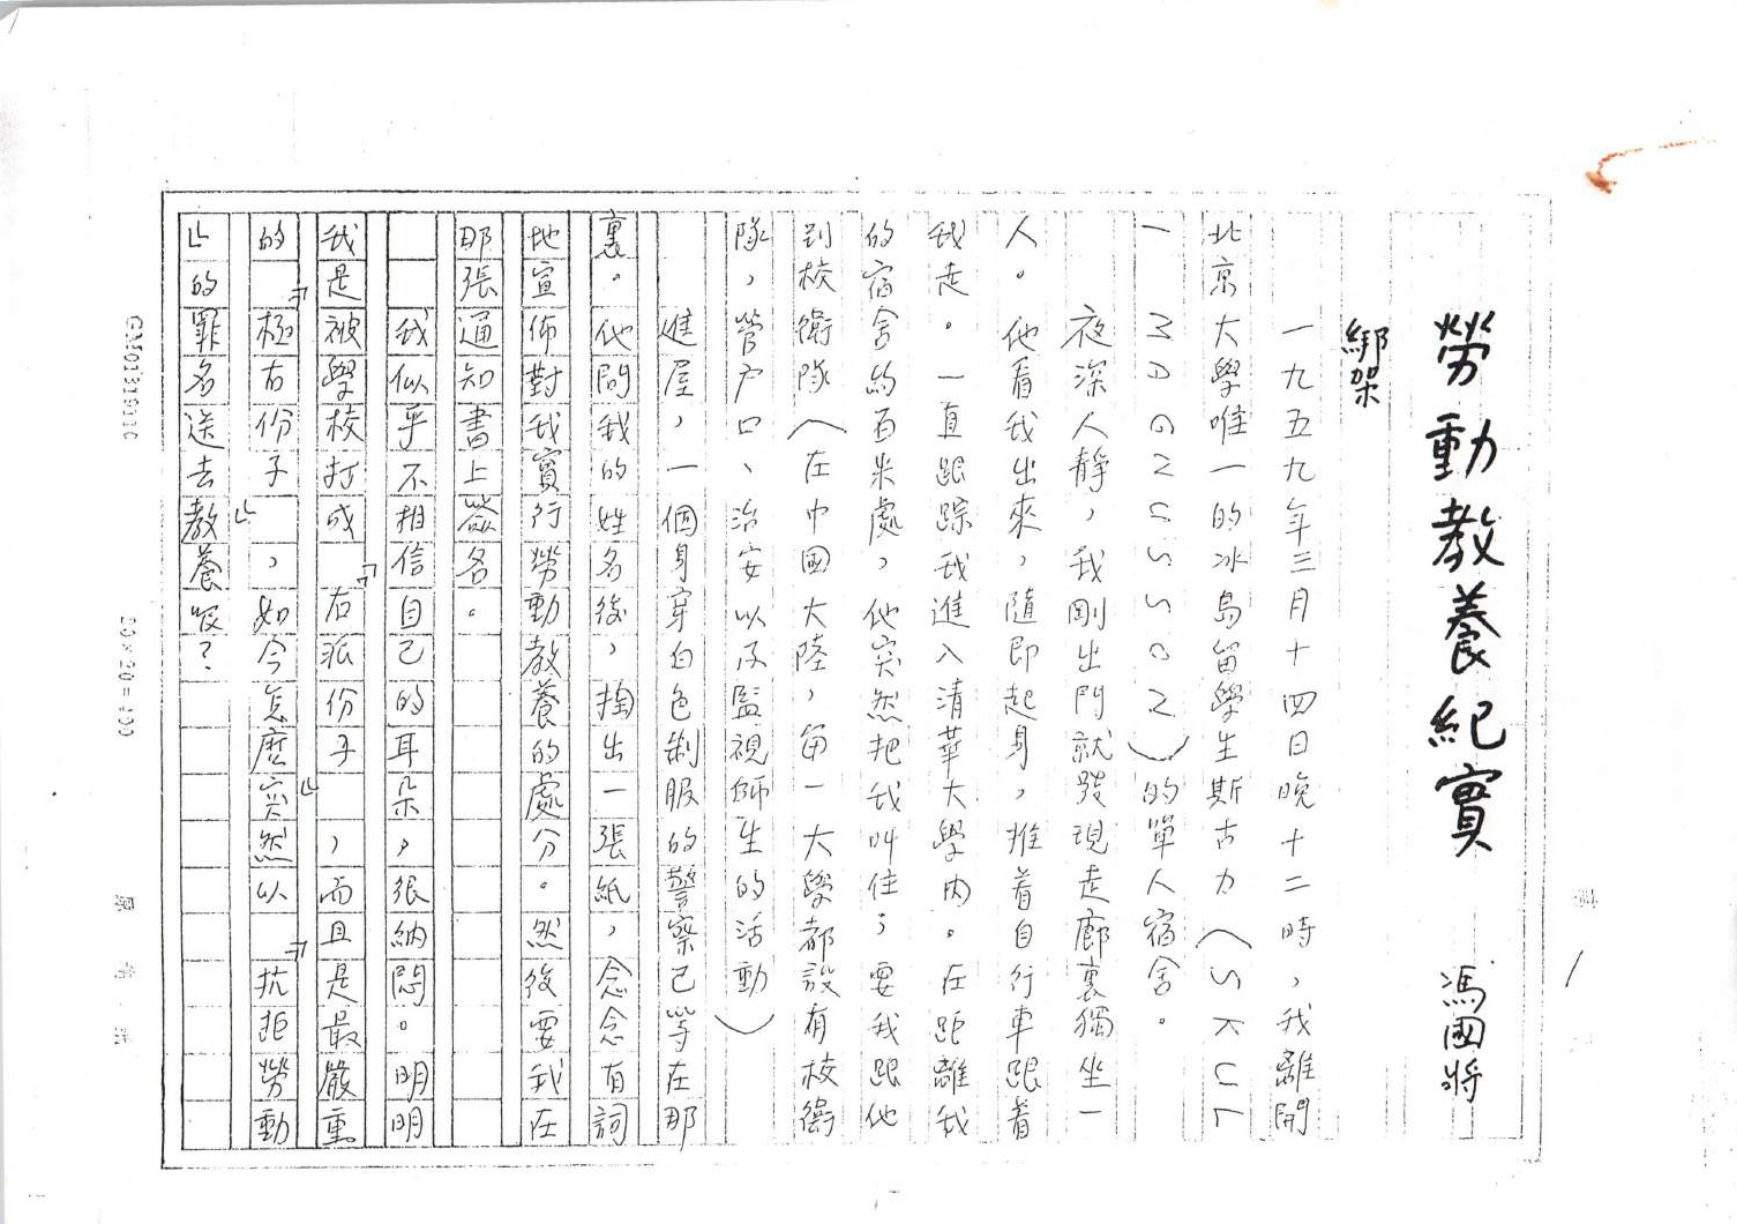 勞動教養紀實　馮國將
綁架
一九五九年三月十四日晚十二時，我離開
北京大學唯一的冰島留學生斯古力（SKUL
I MAGNUSSON）的單人宿舍。
夜深人靜，我剛出門就發現走廊裏獨坐一
人。他看我出來，隨即起身，推着自行車跟着
我走。一直跟踪我進入清華大學內。在距離我
的宿舍約百米處，他突然把我叫住；要我跟他
到校衛隊（在中國大陸，每一大學都設有校衛
隊，管户口、治安以及監視師生的活動）
進屋，一個身穿白色制服的警察已等在那
裏。他問我的姓名後，掏出一張紙，念念有詞
地宣佈對我實行勞動教養的處分。然後要我在
那張通知書上簽名。
我似乎不相信自己的耳朵，很納悶。明明
我是被學校打成『右派份子』，而且是最嚴重
的『極右份子』，如今怎麽突然以『抗拒勞動
』的罪名送去教養呢？
20×20=400